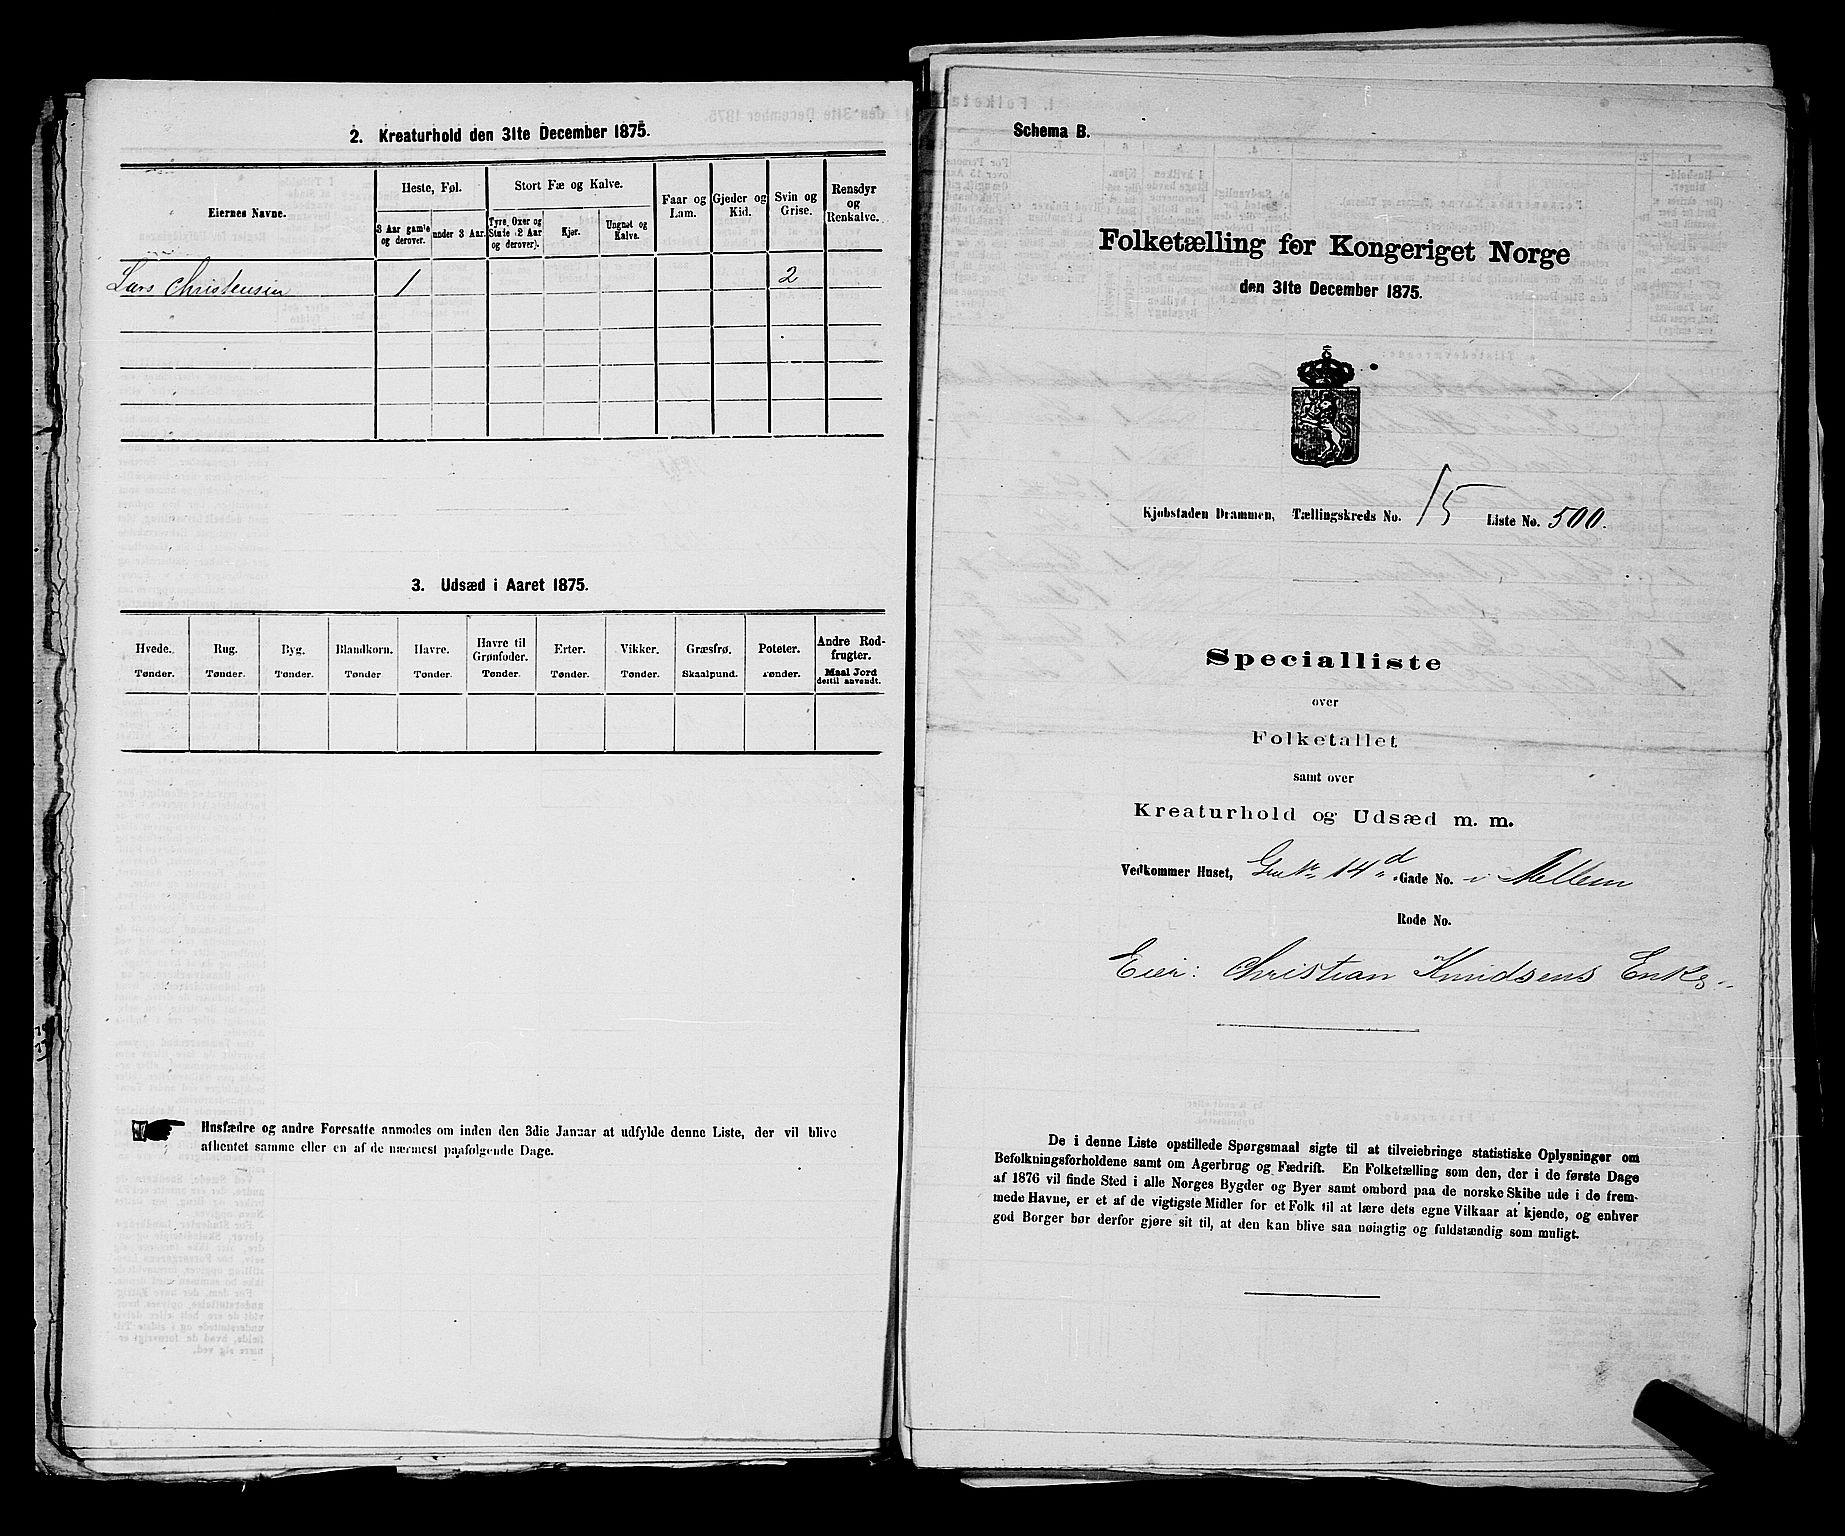 2. Kreaturhold den 31te December 1875.
Eiernes Navne.
Heste, Føl.
Stort Fæ og Kalve.
Faar og Lam.
Gjeder og Kid.
Svin og Grise.
Rensdyr og Renkalve.
3 Aar gamle og derover.
under 3 Aar.
Tyre, Oxer og Stude (2 Aar og derover).
Kjør.
Ungnøt og Kalve.
Lars Christensen 1 2
3. Udsæd i Aaret 1875.
Hvede. Rug. Byg. Blandkorn. Havre. Havre til Grønfoder. Erter. Vikker. Græsfrø. Poteter. Andre Rodfrugter.
Tønder. Tønder. Tønder. Tønder Tønder. Tønder. Tønder. Tønder. Skaalpund. Tønder. Maal Jord dertil anvendt.
Husfædre og andre Foresatte anmodes om inden den 3die Januar at udfylde denne Liste, der vil blive
afhentet samme eller en af de nærmest paafølgende Dage.
Schema B.
Folketælling for Kongeriget Norge
den 31te December 1875.
Kjøbstaden Drammen, Tællingskreds No. 15 Liste No. 500.
Specialliste
over
Folketallet
samt over
Kreaturhold og Udsæd m. m.
Vedkommer Huset, 14 d Gade No. i Mellem
Rode No.
Eier: Christian Knudsens Enke
De i denne Liste opstillede Spørgsmaal sigte til at tilveiebringe statistiske Oplysninger om
Befolkningsforholdene samt om Agerbrug og Fædrift. En Folketælling som den, der i de første Dage
af 1876 vil finde Sted i alle Norges Bygder og Byer samt ombord paa de norske Skibe ude i de frem-
mede Havne, er et af de vigtigste Midler for et Folk til at lære dets egne Vilkaar at kjende, og enhver
god Borger bør derfor gjøre sit til, at den kan blive saa nøiagtig og fuldstændig som muligt.